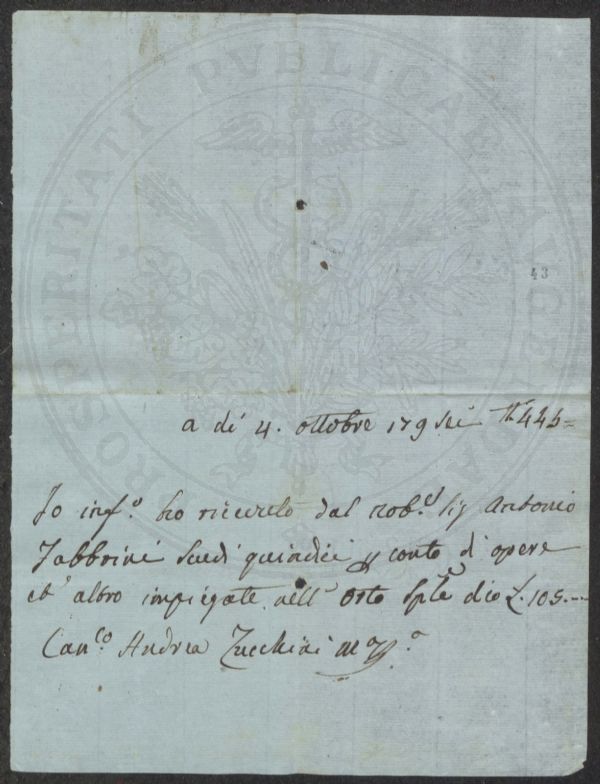 PROSPERITATI PVBLICAE AVGENDAE
43
a dì 4. ottobre 179 sei
Io inf.o ho ricevuto dal nob.e Sig Antonio
Fabbrini Scudi quindici p conto di opere
ed altro impiegate nell' Orto Sp.le dico £. 105.--
Can.co Andrea Zucchini